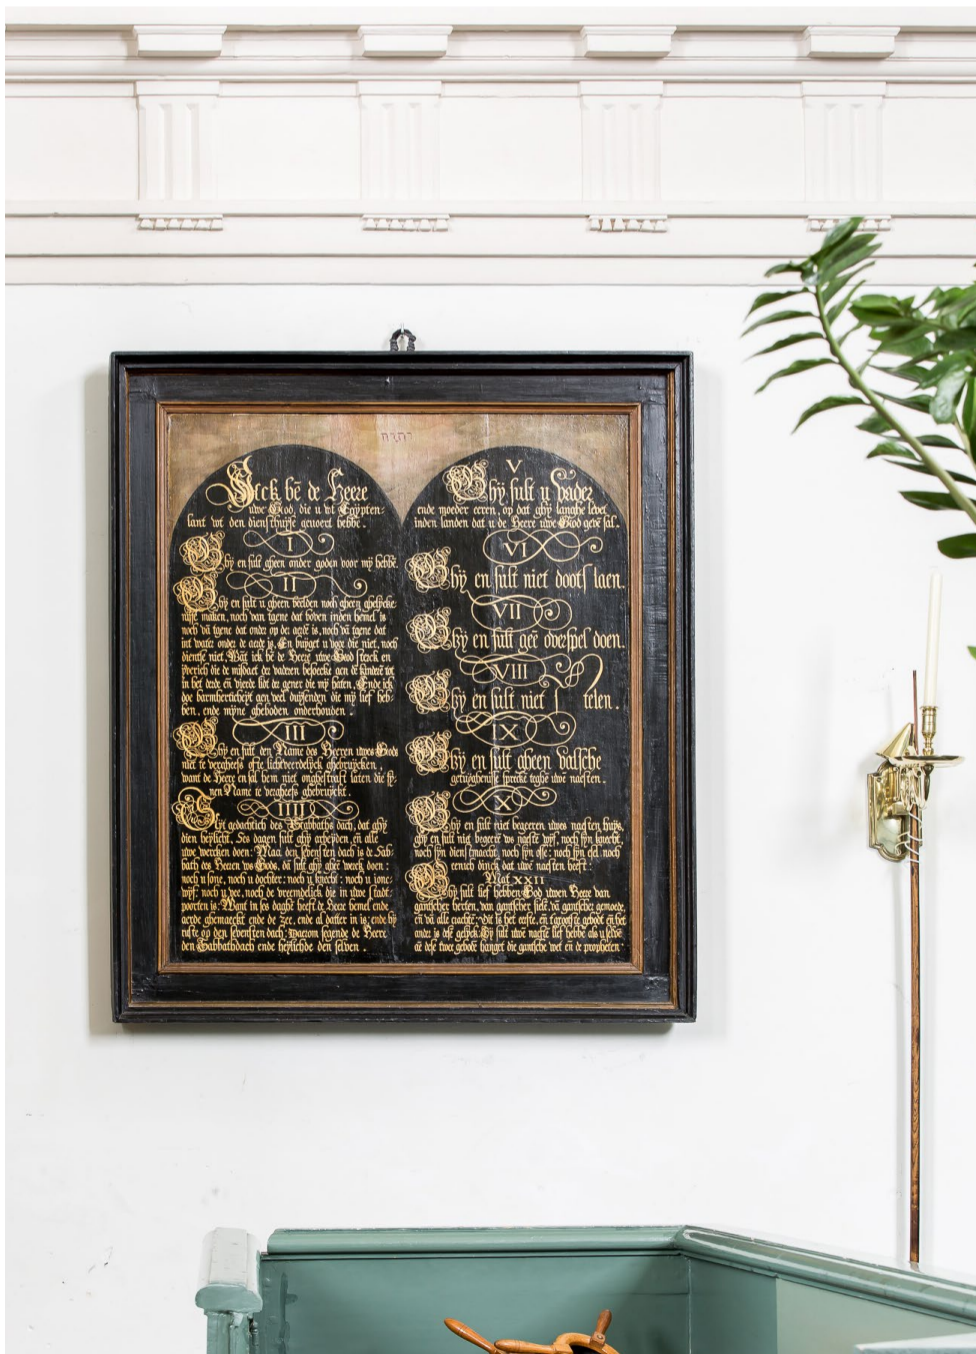 Jck bē de Heere
uwe God, die u wt Egypten
lant wt den diensthuyse geuoert hebbe.
I
Ghy en sult gheen ander goden voor my hebbē.
II
Ghy en sult u gheen beelden noch gheen ghelycke
nisse maken, noch van tgene dat boven inden hemel is
noch vā tgene dat onder op der aerdē is, noch vā tgene dat
int water onder de aerde is, En buyget u voor die niet, noch
dientse niet, Wāt ick bē de Heere uwe God sterck en
yverich die de misdaet der vaderen besoecke aen dē kinderē tot
in het derde eñ vierde lidt der gener die my haten, Ende ick
doe barmherticheyt aen veel duysenden die my lief heb-
ben, ende myne gheboden onderhouden.
III
Ghy en sult den Name des Heeren uwes Gods
niet te vergheefs ofte lichtveerdelyck ghebruycken,
want de Heere en sal hem niet onghestraft laten die sy-
nen Name te vergheefs ghebruyckt.
IIII
Syt gedachtich des Sabbaths dach, dat ghy
dien heylicht, Ses dagen sult ghy arbeyden, eñ alle
uwe wercken doen: Maer den sevensten dach is de Sab-
bath des Heeren ws Gods, dā sult ghy gheē werck doen:
noch u sone, noch u dochter: noch u knecht: noch u ionc-
wyf: noch u vee, noch de vreemdelick die in uwe stadt
poorten is: Want in ses daghē heeft de Heere hemel ende
aerde ghemaeckt ende de zee, ende al datter in is: ende hy
ruste op den sevensten dach: Daerom segende de Heere
den Sabbathdach ende heylichde den selven.
תורה
V
Ghy sult u Vader
ende moeder eeren, op dat ghy langhe levet
inden landen dat u de Heere uwe God gevē sal.
VI
Ghy en sult niet dootslaen.
VII
Ghy en sult geē overspel doen.
VIII
Ghy en sult niet stelen.
IX
Ghy en sult gheen valsche
getuyghenisse sprekē teghē uwē naesten.
X
Ghy en sult niet begeeren uwes naesten huys,
ghy en sult niet begeerē ws naestē wyf, noch syn knecht,
noch syn dienstmaecht, noch syn osse: noch syn esel, noch
eenich dinck dat uwē naesten heeft:
Mat. XXII
Ghy sult lief hebben God uwen Heere van
gantscher herten, van gantscher sielē, vā gantscher gemoede,
eñ vā alle crachtē: dit is het eerste, eñ t'grootste gebodt eñ het
ander is desē gelyck: Ghy sult uwē naestē lief hebbē als u selvē
aē dese twee gebodē hanget die gantsche wet eñ de propheten